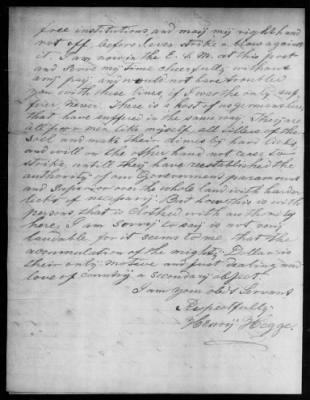 free institutions and may my right hand
rot off, before I ever strike a blow against
it. I am now in the E. M. M. at this post
and spend my time cheerfully without
any pay, and would not have troubled
you with these lines, if I wer the only suf-
frier. never. There is a host of us germans here
that have suffred in the same way. They are
all poor men like myself, all tillers of the
soil and make their dimes by hard licks,
and will on the other hand not cease to
strike, untill they have reestablished the
authority of our Government paramount
and Superior over the whole land with harder
licks if necessary. But how this is with
persons that is clothed with authority
here, I am sorry to say is not very
laudable for it seems to me, that the
accumulation of the mighty Dollar is
their only motive and just dealing and
love of country a secondary object.
I am your ob't Servant
Respectfully
Henry Hegge